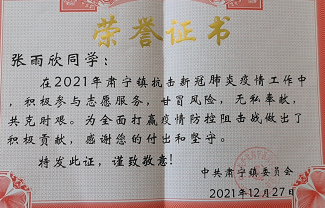 荣誉证书
张雨欣同学：
在2021年肃宁镇抗击新冠肺炎疫情工作中
，积极参与志愿服务，甘冒风险，无私奉献，
共克时艰。为全面打赢疫情防控阻击战做出了
积极贡献，感谢您的付出和坚守。
特发此证，谨致敬意！
中共肃宁镇委员会
2021年12月27日